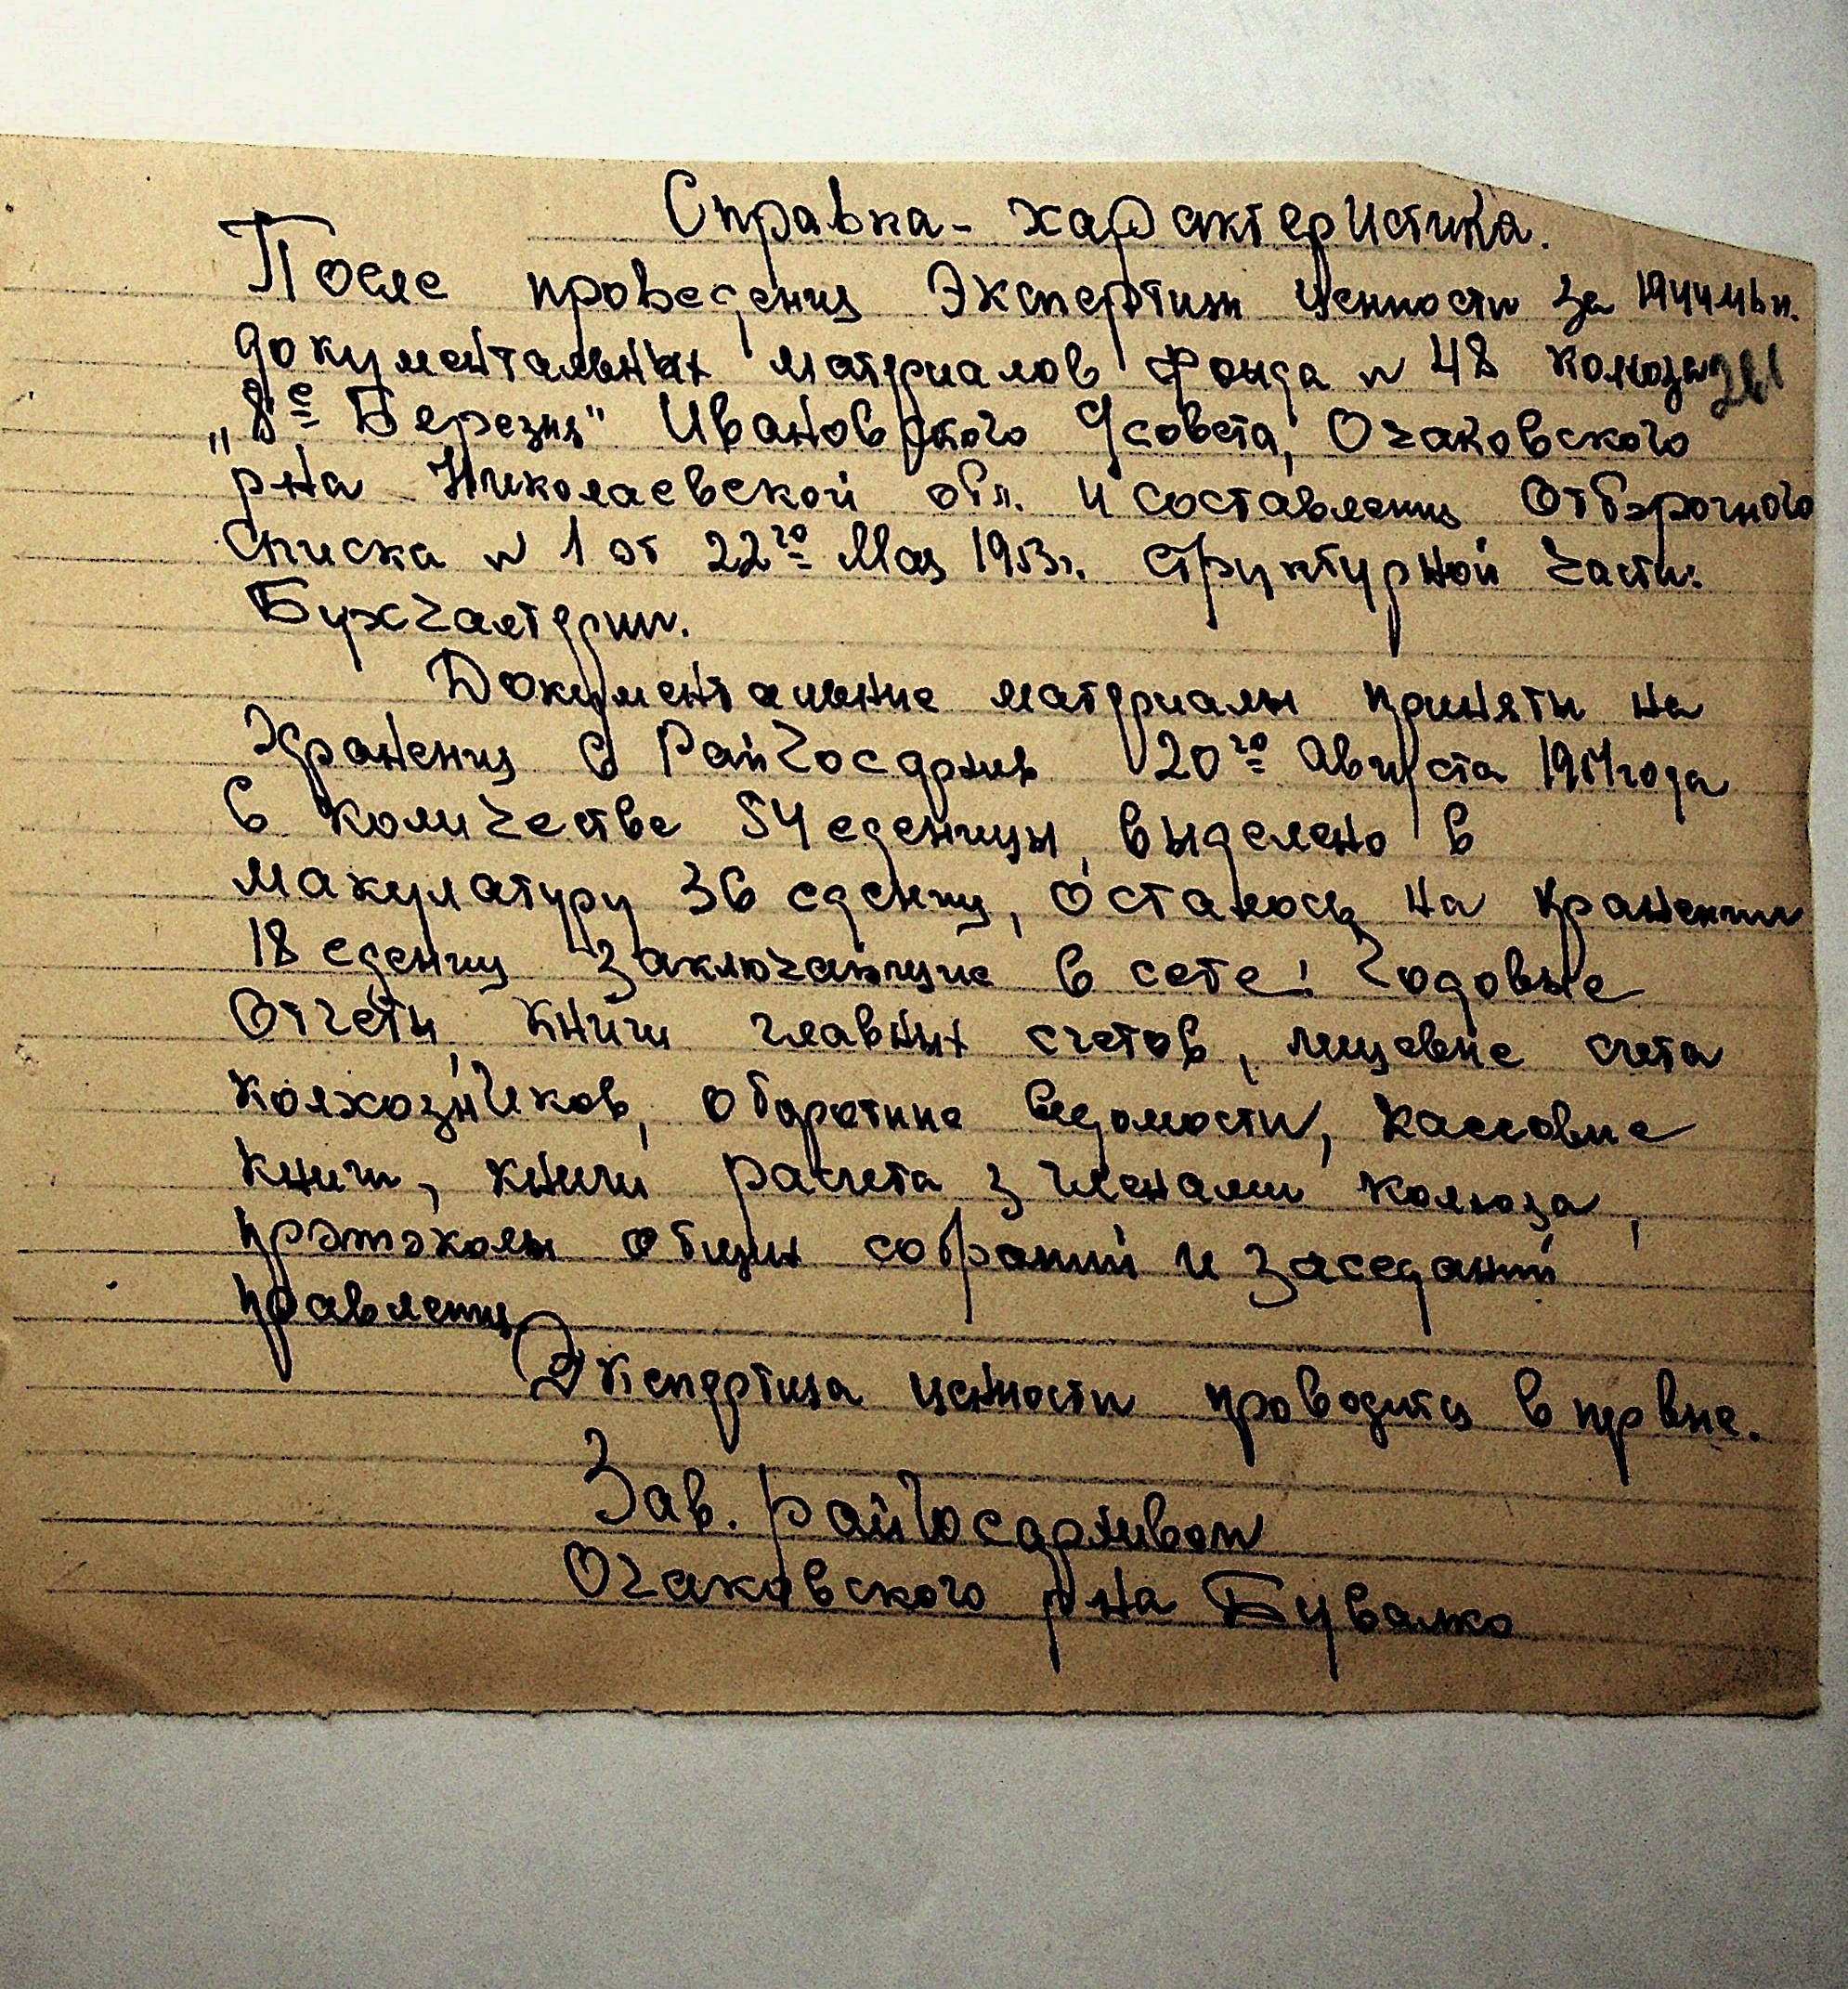 Справка - характеристика.
После проведения Экспертизи ценности за
документальних материалов фонда N 48 колхоза
„8е Березня" Ивановского с/совета, Очаковского
р-на Николаевской обл. и составления Отборочного
Списка N 1 от 22го Мая 1953г. структурной части:
Бухгалтерии.
Документальние материалы приняти на
Хранения в Райгосархив 20го Августа года
в количестве 54 еденицы, выделено в
макулатуру 36 едениц, осталось на хранении
18 едениц заключающие в себе: Годовые
Отчети, книги главных счетов, лицевие счета
колхозников, оборотние ведомости, кассовие
книги, книги расчета з членами колхоза,
протоколы общих собраний и заседаний
правления
Экспертиза ценности проводится впервие.
Зав. райгосархивом
Очаковского р-на Бувалко